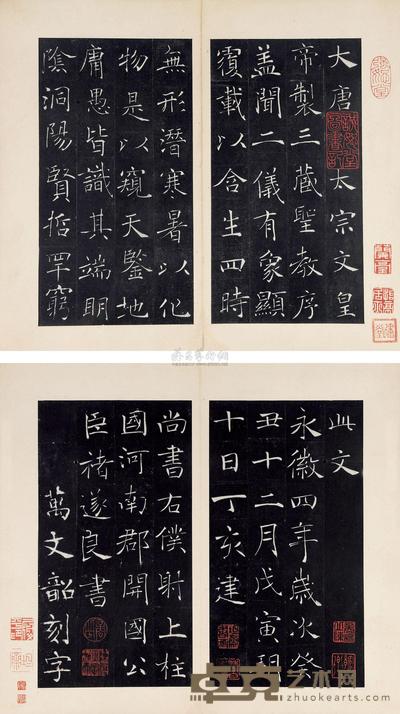 大唐太宗文皇
帝製三藏聖教序
盖聞二儀有象顯
覆載以含生四時
無形潛寒暑以化
物是以窺天鑒地
庸愚皆識其端明
陰洞陽賢哲罕窮
此文
永徽四年歲次癸
丑十二月戊寅朔
十日丁亥建
尚書右僕射上柱
國河南郡開國公
臣褚遂良書
萬文韶刻字
艺术网
zhuokearts.com